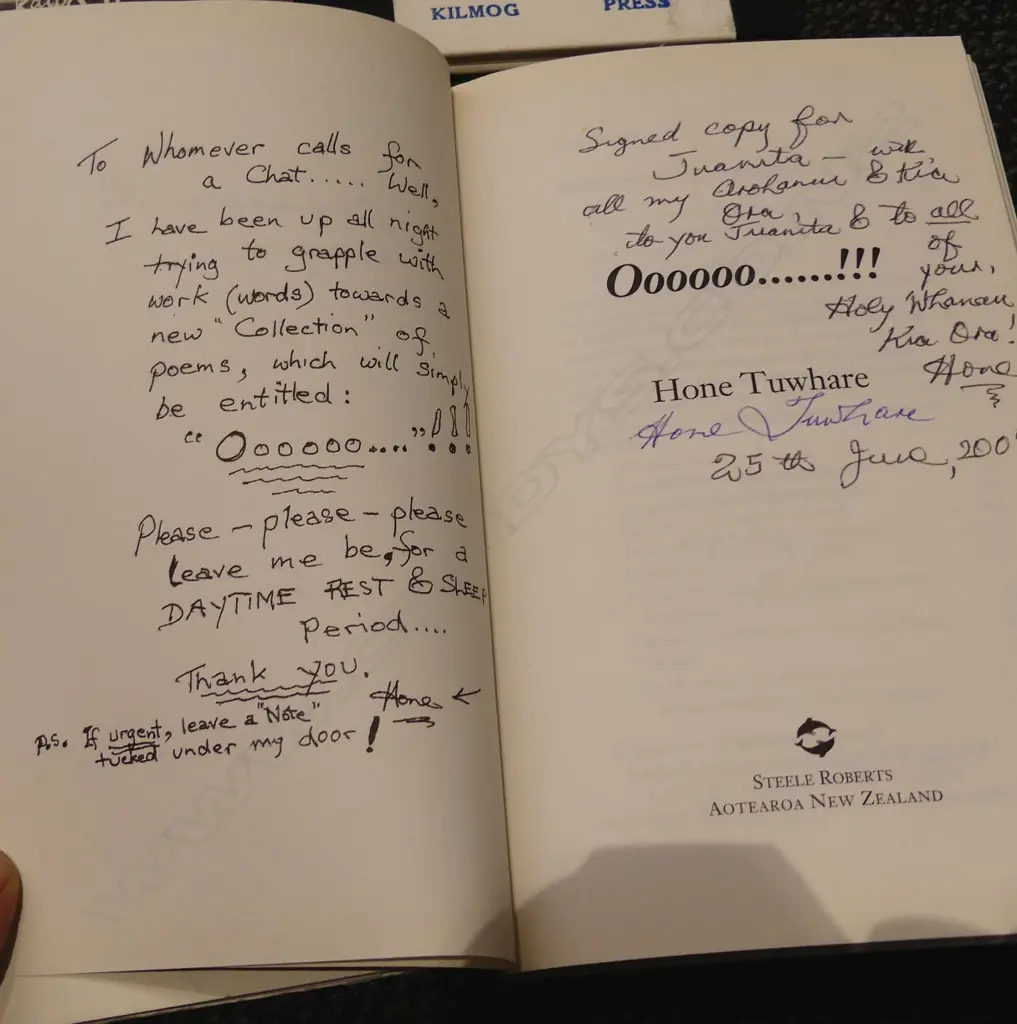 KILMOG
PRESS
To Whomever calls for
a Chat..... Well,
I have been up all night
trying to grapple with
work (words) towards a
new "Collection" of
poems, which will simply
be entitled:
"Oooooo....."!!!
Please – please – please
Leave me be, for a
DAYTIME REST & SLEEP
Period....
Thank you.
Hone ←
P.S. If urgent, leave a "Note"
tucked under my door!
Signed copy for
Juanita – with
all my Arohanui & Kia
Ora,
to you Juanita & to all
of
yours,
Holy Whanau
Kia Ora!
Hone
Oooooo.......!!!
Hone Tuwhare
Hone Tuwhare
25th June, 200
STEELE ROBERTS
AOTEAROA NEW ZEALAND